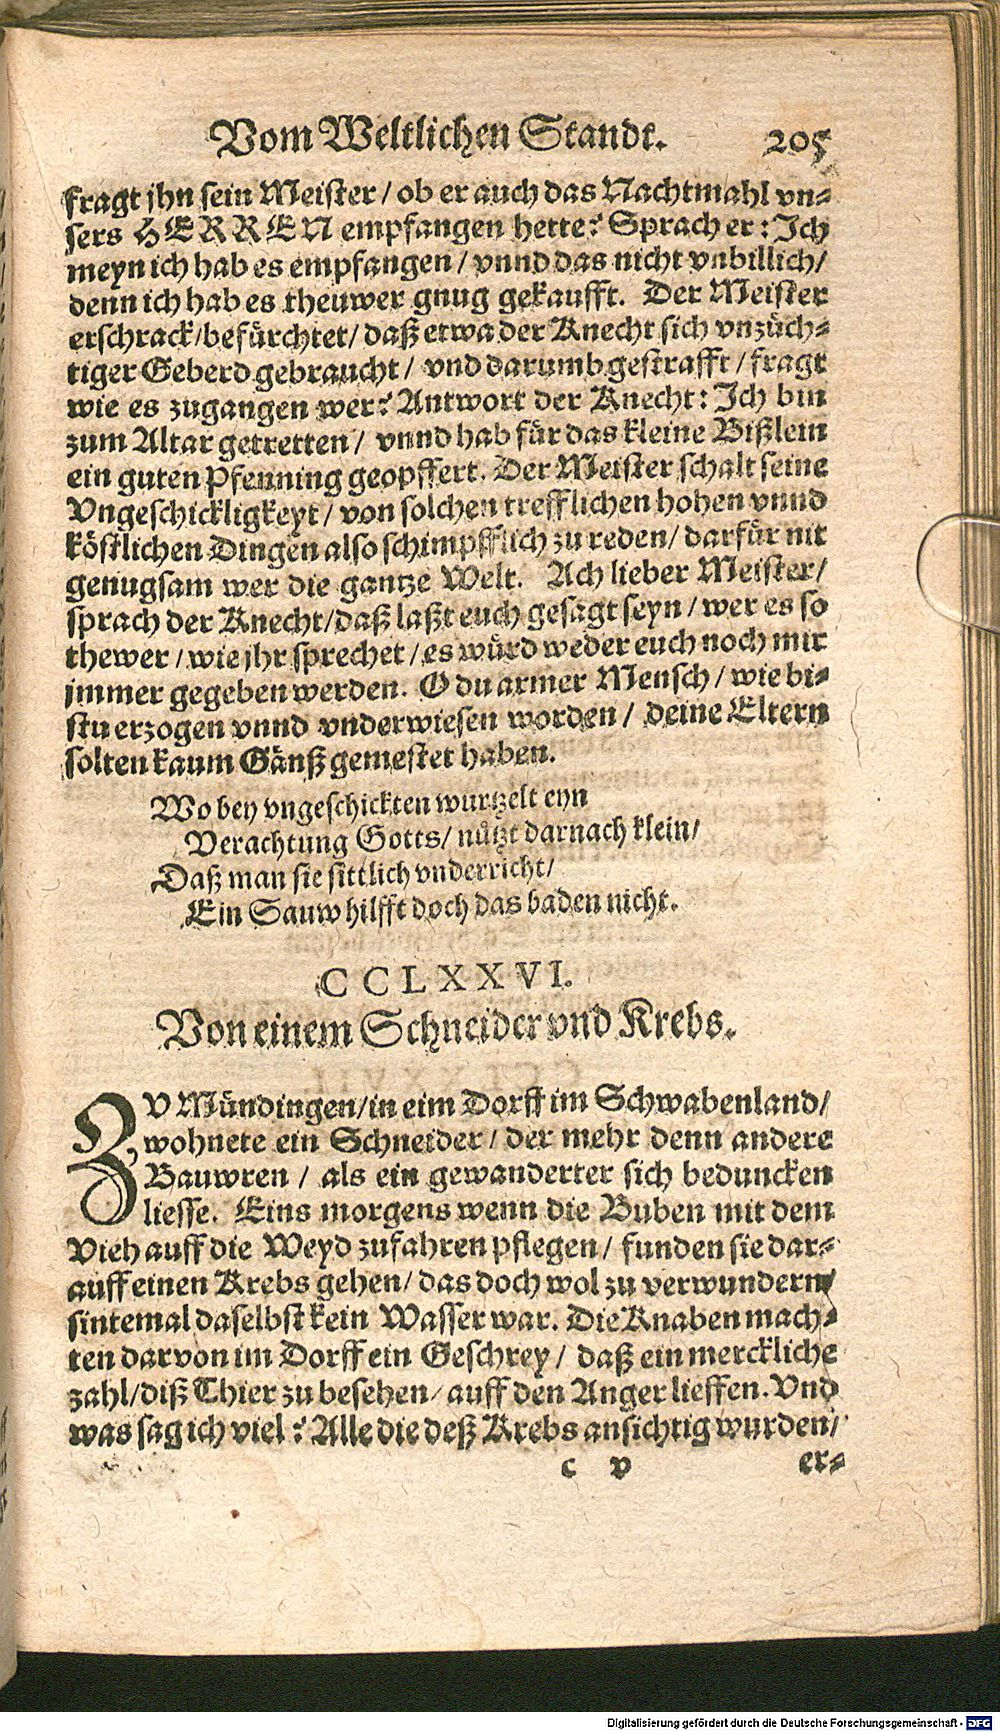 Vom Weltlichen Standt. 205
fragt jhn sein Meister / ob er auch das Nachtmahl vn-
sers HERREN empfangen hette? Sprach er: Ich
meyn ich hab es empfangen / vnnd das nicht vnbillich /
denn ich hab es theuwer gnug gekaufft. Der Meister
erschrack / befürchtet / daß etwa der Knecht sich vnzüch-
tiger Geberd gebraucht / vnd darumb gestrafft / fragt
wie es zugangen wer? Antwort der Knecht: Ich bin
zum Altar getretten / vnnd hab für das kleine Bißlein
ein guten Pfenning geopffert. Der Meister schalt seine
Vngeschickligkeyt / von solchen trefflichen hohen vnnd
köstlichen Dingen also schimpfflich zu reden / darfür nit
genugsam wer die gantze Welt. Ach lieber Meister /
sprach der Knecht / daß laßt euch gesagt seyn / wer es so
thewer / wie jhr sprechet / es würd weder euch noch mir
jmmer gegeben werden. O du armer Mensch / wie bi-
stu erzogen vnnd vnderwiesen worden / deine Eltern
solten kaum Gänß gemestet haben.
Wo bey vngeschickten wurtzelt eyn
Verachtung Gotts / nützt darnach klein /
Daß man sie sittlich vnderricht /
Ein Sauw hilfft doch das baden nicht.
CCLXXVI.
Von einem Schneider vnd Krebs.
ZV Mündingen / in eim Dorff im Schwabenland /
wohnete ein Schneider / der mehr denn andere
Bauwren / als ein gewanderter sich beduncken
liesse. Eins morgens wenn die Buben mit dem
Vieh auff die Weyd zufahren pflegen / funden sie dar-
auff einen Krebs gehen / das doch wol zu verwundern /
sintemal daselbst kein Wasser war. Die Knaben mach-
ten darvon im Dorff ein Geschrey / daß ein merckliche
zahl / diß Thier zu besehen / auff den Anger lieffen. Vnd
was sag ich viel? Alle die deß Krebs ansichtig wurden /
c v er-
Digitalisierung gefördert durch die Deutsche Forschungsgemeinschaft - DFG